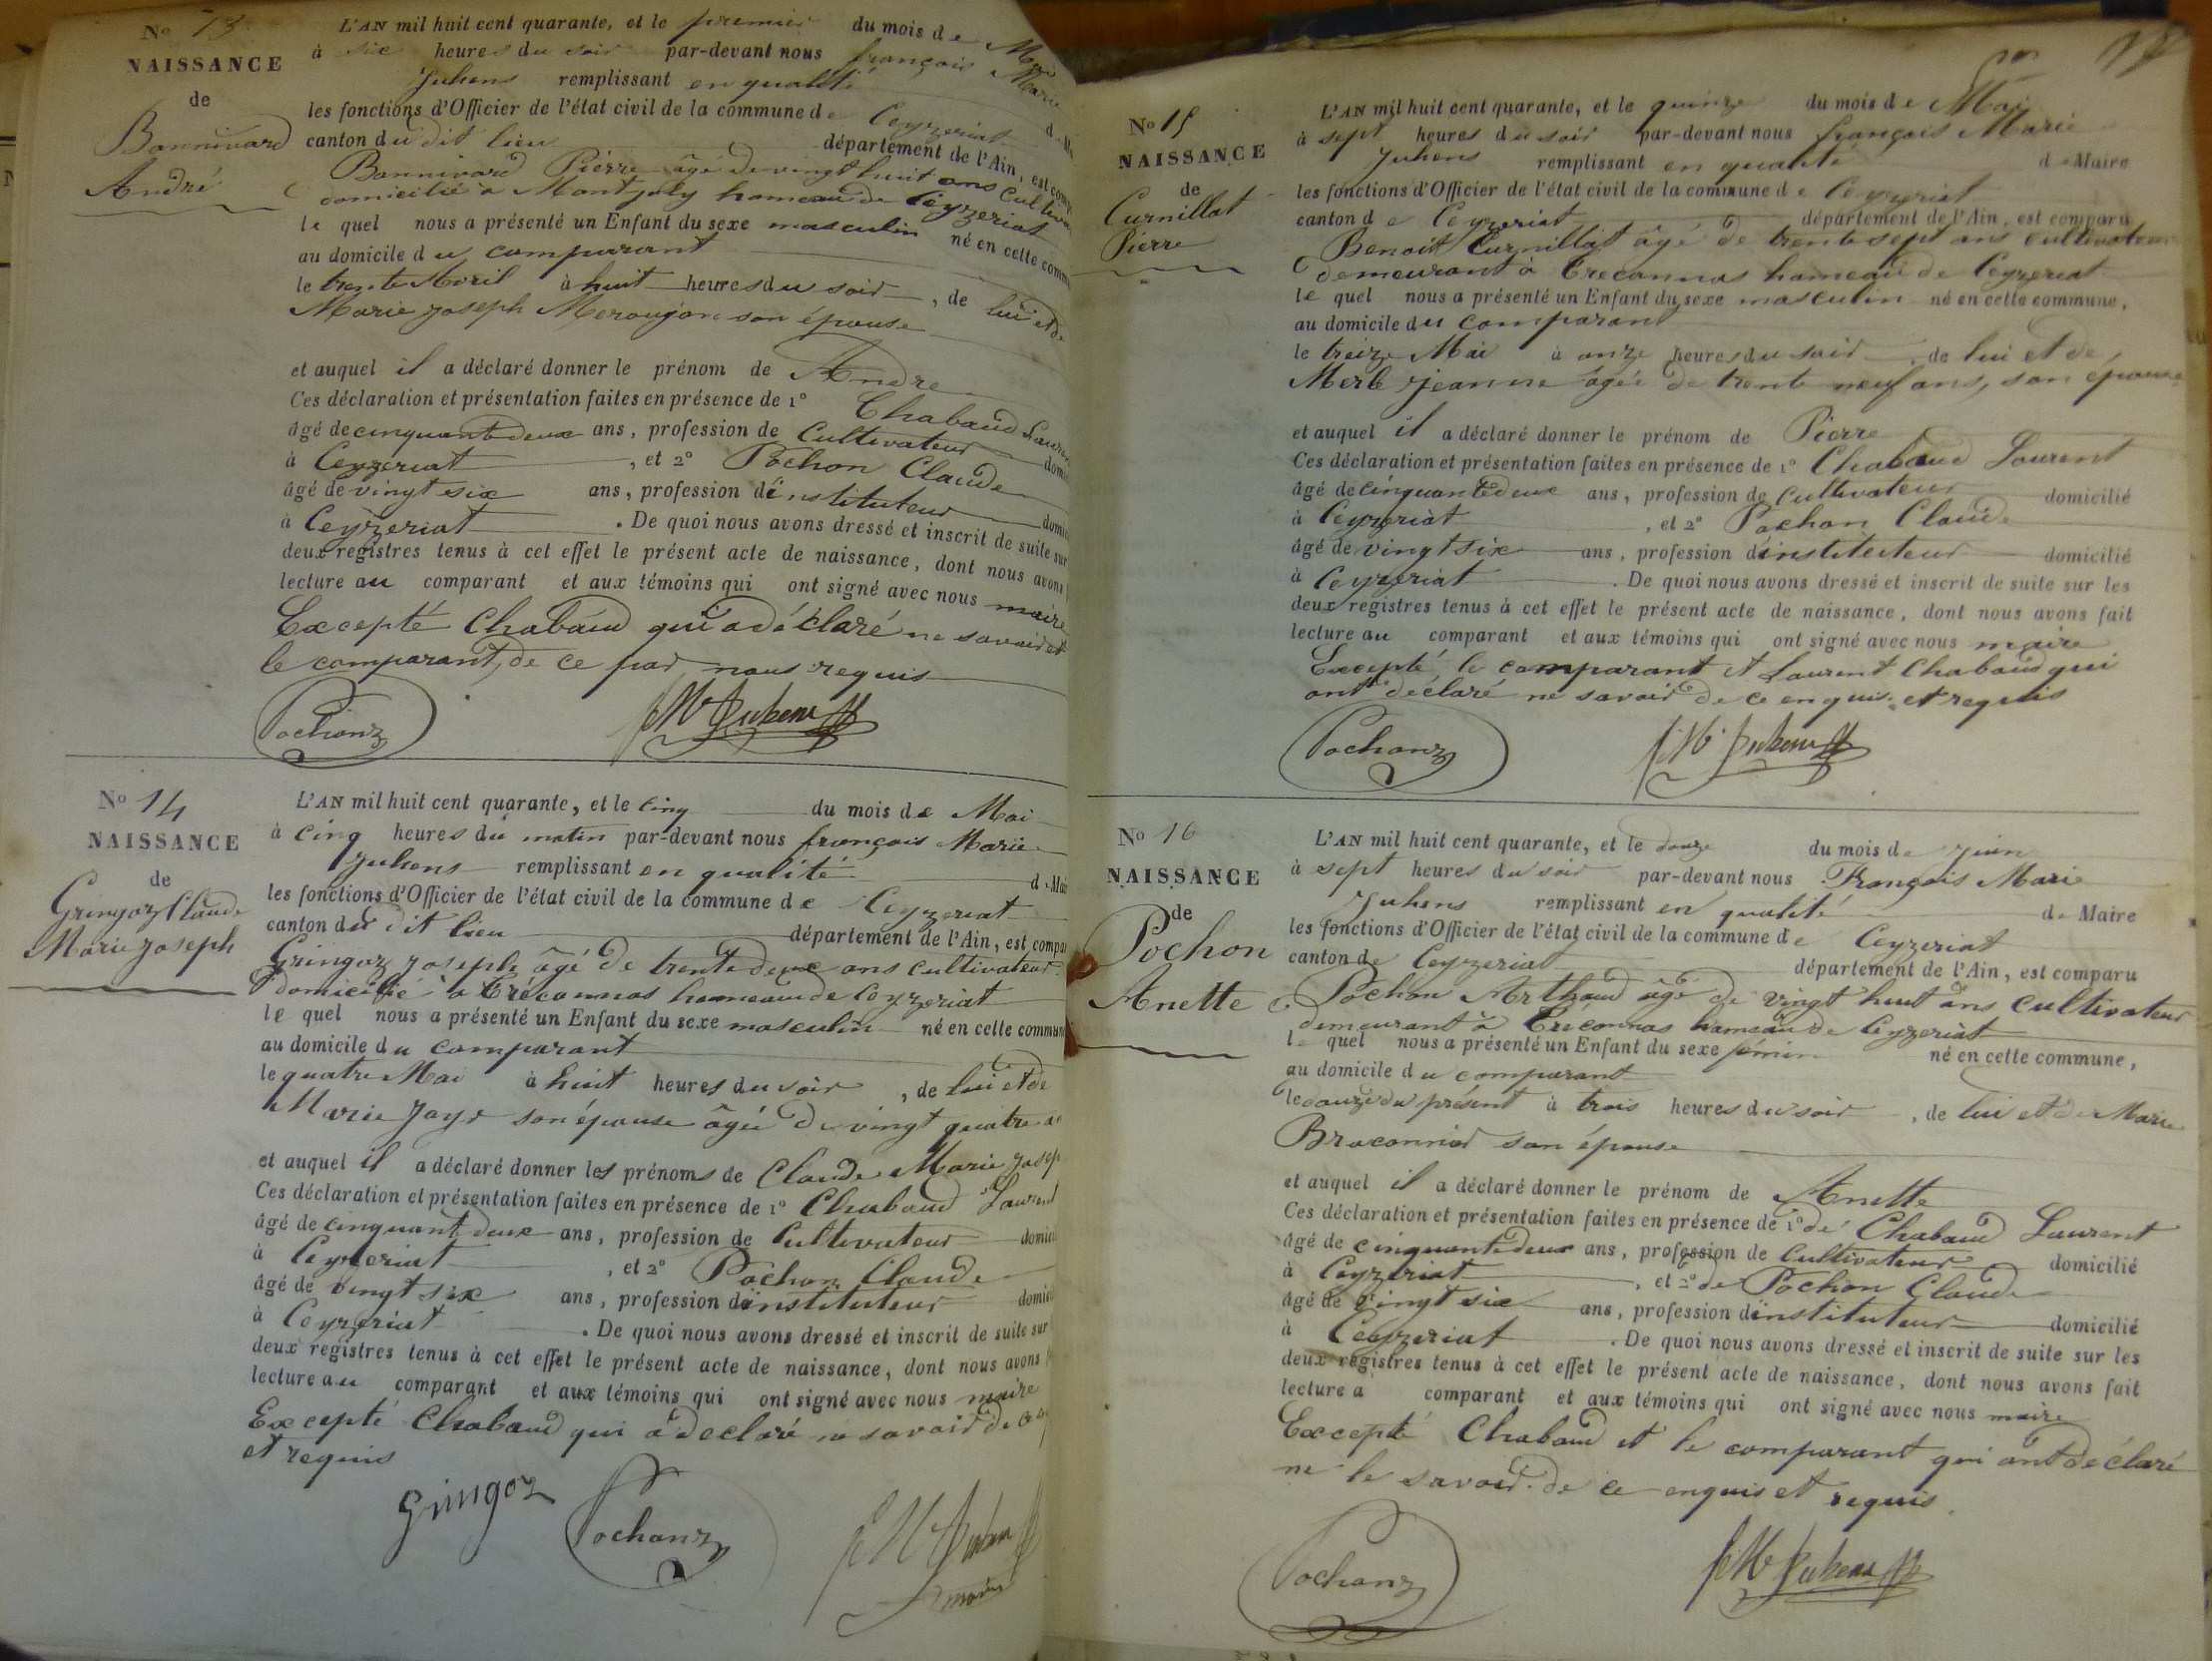 No 13
NAISSANCE
de
Bonnivard
André
L'AN mil huit cent quarante, et le premier du mois de Mai
à six heures du soir par-devant nous françois Marie
Juhens remplissant en qualité
les fonctions d'Officier de l'état civil de la commune de Ceyzeriat
canton du dit lieu département de l'Ain, est comp
Bonnivard Pierre âgé de vingt huit ans Cultiva
domicilié a Montjuly hameau de Ceyzeriat
le quel nous a présenté un Enfant du sexe masculin né en cette comm
au domicile du comparant
le trente Avril à huit heures du soir, de lui et de
Marie joseph son épouse
et auquel il a déclaré donner le prénom de Andre
Ces déclaration et présentation faites en présence de 1° Chabaud Laurent
âgé de cinquante deux ans, profession de Cultivateur domi
à Ceyzeriat, et 2° Pochon Claude
âgé de vingt six ans, profession d'instituteur domi
à Ceyzeriat. De quoi nous avons dressé et inscrit de suite sur
deux registres tenus à cet effet le présent acte de naissance, dont nous avons
lecture au comparant et aux témoins qui ont signé avec nous maire
Excepté Chabaud qui a déclaré ne savoir et
le comparant, de ce par nous requis
Pochon
fM Juhens
No 14
NAISSANCE
de
Gringoz Claude
Marie joseph
L'AN mil huit cent quarante, et le cinq du mois de Mai
à cinq heures du matin par-devant nous françois Marie
Juhens remplissant en qualité de Mai
les fonctions d'Officier de l'état civil de la commune de Ceyzeriat
canton du dit lieu département de l'Ain, est compa
Gringoz joseph âgé de trente deux ans cultivateur
domicilié à Tréconnas hameau de Ceyzeriat
le quel nous a présenté un Enfant du sexe masculin né en cette commun
au domicile du comparant
le quatre Mai à huit heures du soir, de lui et de
Marie Jay son épouse âgée de vingt quatre a
et auquel il a déclaré donner les prénoms de Claude Marie josep
Ces déclaration et présentation faites en présence de 1° Chabaud Laurent
âgé de cinquante deux ans, profession de Cultivateur domici
à Ceyzeriat, et 2° Pochon Claude
âgé de vingt six ans, profession d'instituteur domici
à Ceyzeriat. De quoi nous avons dressé et inscrit de suite sur
deux registres tenus à cet effet le présent acte de naissance, dont nous avons
lecture au comparant et aux témoins qui ont signé avec nous maire
Excepté Chabaud qui a déclaré ne savoir de ce
et requis
Gringoz
Pochon
fM Juhens
maire
No 15
NAISSANCE
de
Curnillat
Pierre
L'AN mil huit cent quarante, et le quinze du mois de Mai
à sept heures du soir par-devant nous françois Marie
Juhens remplissant en qualité de Maire
les fonctions d'Officier de l'état civil de la commune de Ceyzeriat
canton de Ceyzeriat département de l'Ain, est comparu
Benoit Curnillat âgé de trente sept ans cultivateur
demeurant à Treconnas hameau de Ceyzeriat
le quel nous a présenté un Enfant du sexe masculin né en cette commune,
au domicile du comparant
le treize Mai à onze heures du soir, de lui et de
Merle jeanne âgée de trente neuf ans, son épouse
et auquel il a déclaré donner le prénom de Pierre
Ces déclaration et présentation faites en présence de 1° Chabaud Laurent
âgé de cinquante deux ans, profession de Cultivateur domicilié
à Ceyzeriat, et 2° Pochon Claude
âgé de vingt six ans, profession d'instituteur domicilié
à Ceyzeriat. De quoi nous avons dressé et inscrit de suite sur les
deux registres tenus à cet effet le présent acte de naissance, dont nous avons fait
lecture au comparant et aux témoins qui ont signé avec nous maire
Excepté le comparant et Laurent Chabaud qui
ont déclaré ne savoir de ce enquis et requis
Pochon
fM Juhens
No 16
NAISSANCE
de
Pochon
Anette
L'AN mil huit cent quarante, et le douze du mois de juin
à sept heures du soir par-devant nous François Marie
Juhens remplissant en qualité de Maire
les fonctions d'Officier de l'état civil de la commune de Ceyzeriat
canton de Ceyzeriat département de l'Ain, est comparu
Pochon Arthaud âgé de vingt huit ans cultivateur
demeurant à Treconnas hameau de Ceyzeriat
le quel nous a présenté un Enfant du sexe féminin né en cette commune,
au domicile du comparant
le douze du présent à trois heures du soir, de lui et de Marie
Braconnier son épouse
et auquel il a déclaré donner le prénom de Anette
Ces déclaration et présentation faites en présence de 1° de Chabaud Laurent
âgé de cinquante deux ans, profession de Cultivateur domicilié
à Ceyzeriat, et 2° de Pochon Claude
âgé de vingt six ans, profession d'instituteur domicilié
à Ceyzeriat. De quoi nous avons dressé et inscrit de suite sur les
deux registres tenus à cet effet le présent acte de naissance, dont nous avons fait
lecture a comparant et aux témoins qui ont signé avec nous maire
Excepté Chabaud et le comparant qui ont déclaré
ne le savoir de ce enquis et requis.
Pochon
fM Juhens